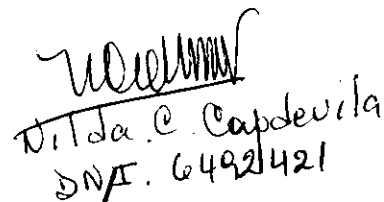 Nilda. C. Capdevila
DNI. 6492421